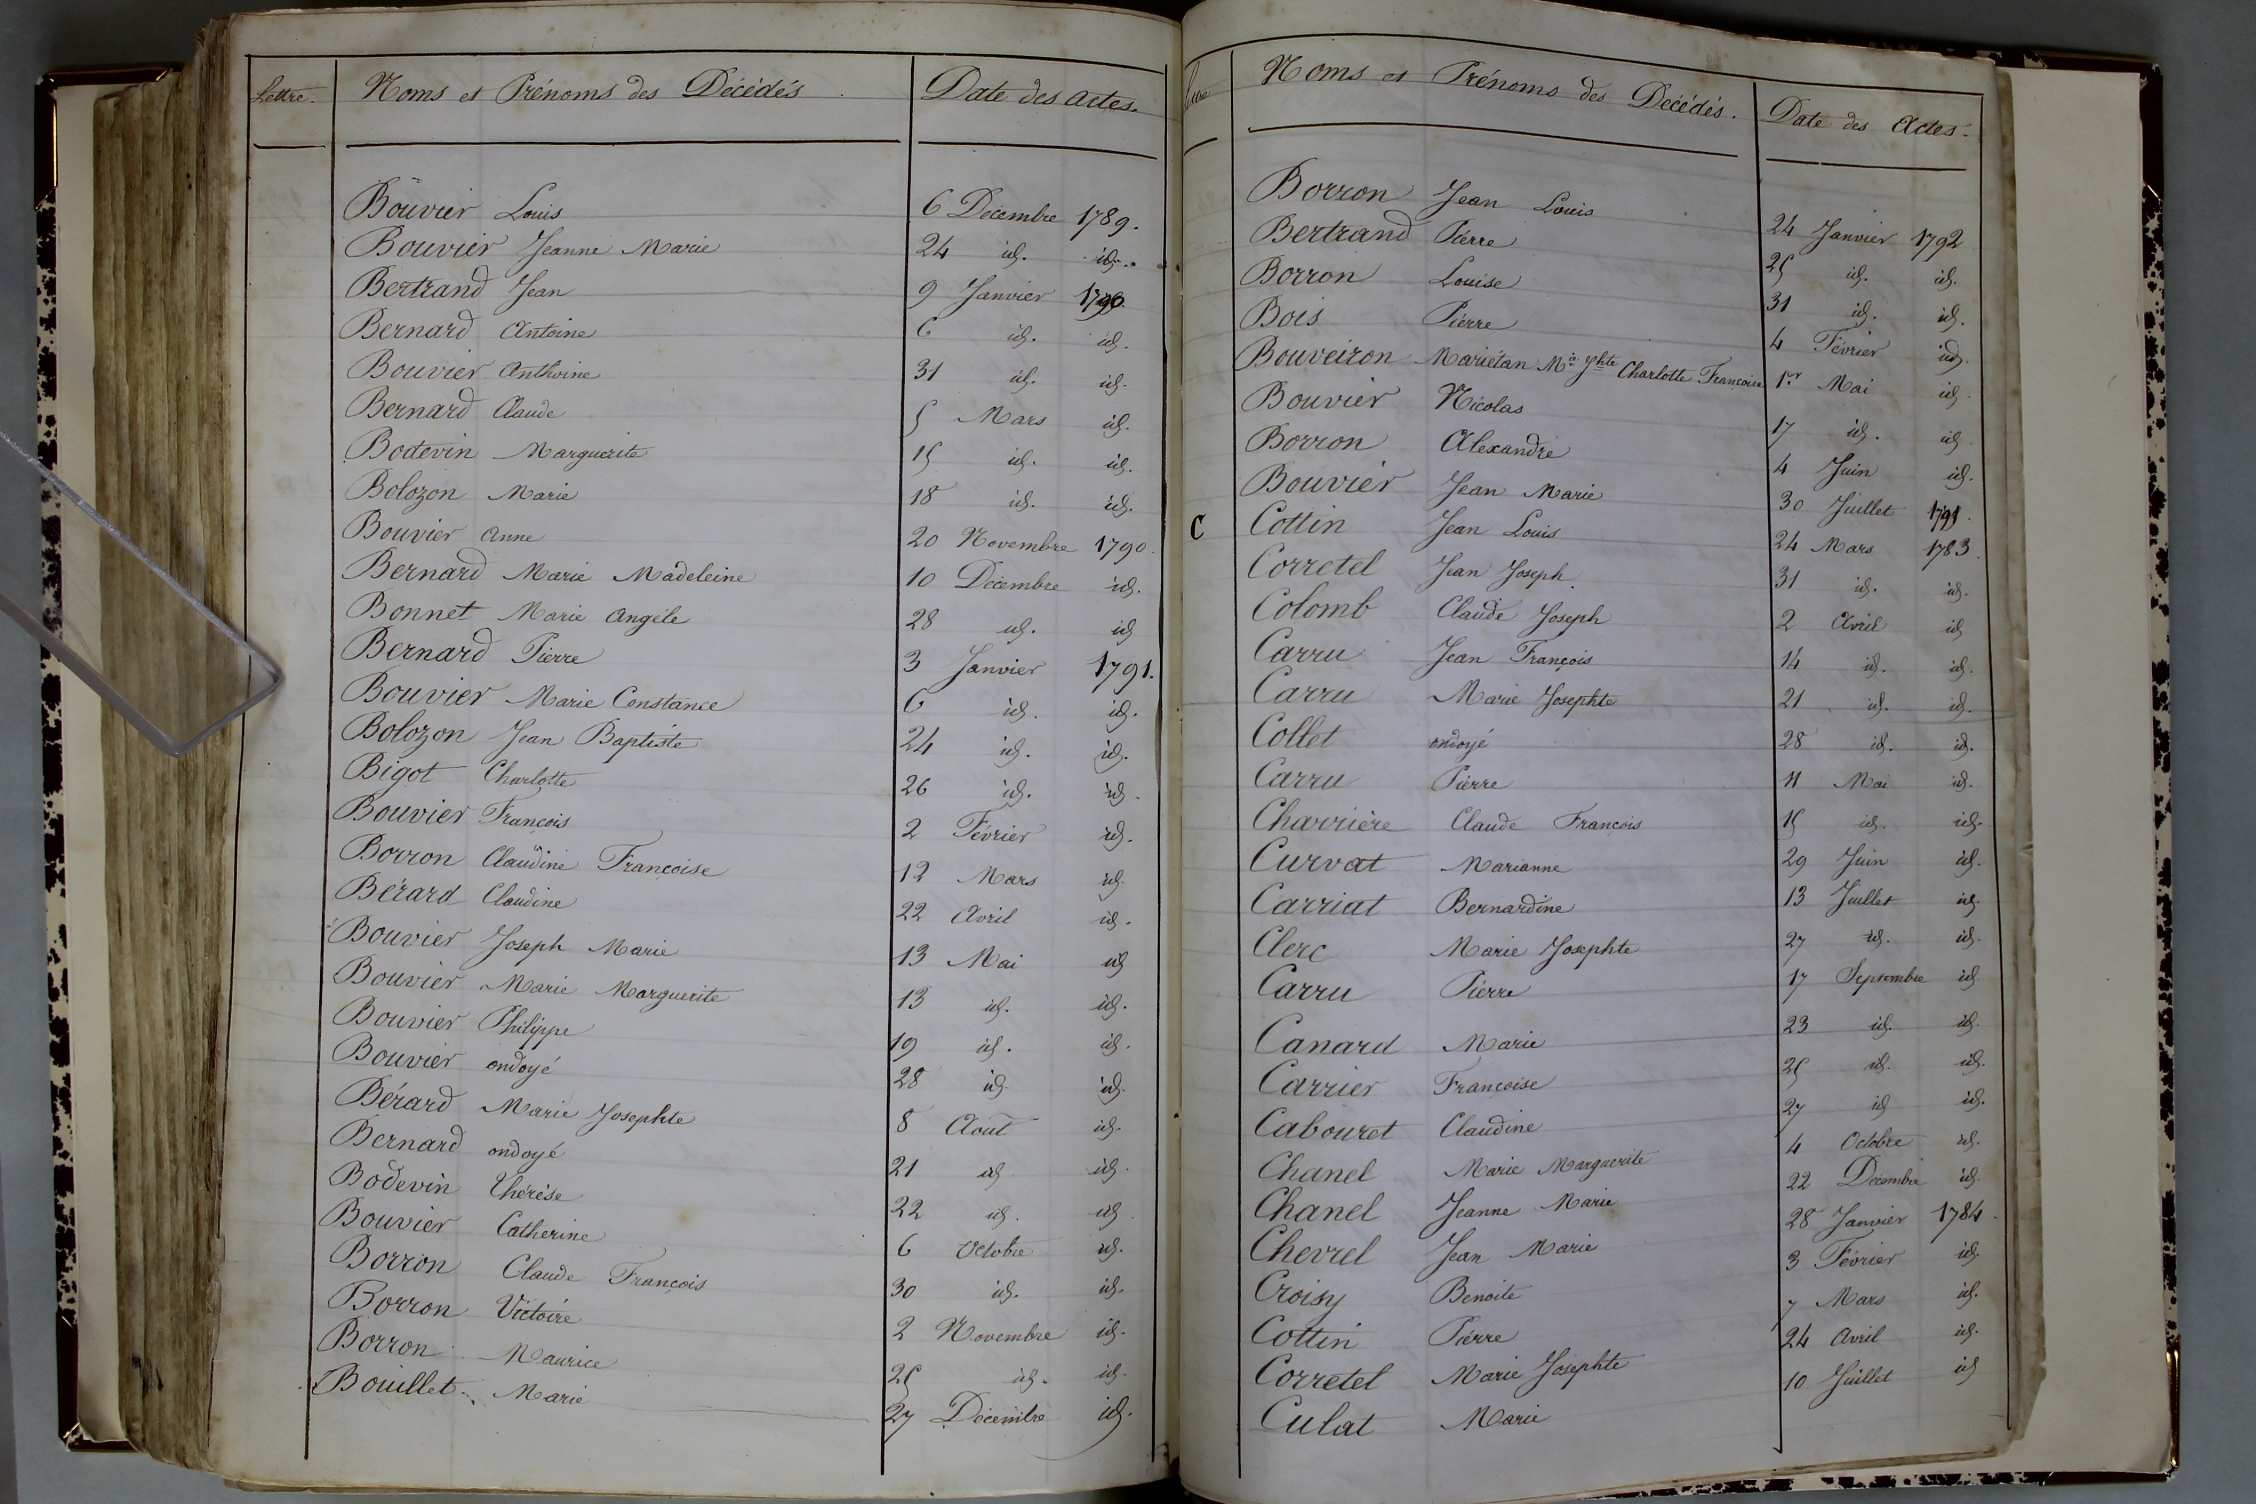 Lettre. Noms et Prénoms des Décédés. Date des Actes.
Bouvier Louis 6 Décembre 1789.
Bouvier Jeanne Marie 24 id. id.
Bertrand Jean 9 Janvier 1790.
Bernard Antoine 6 id. id.
Bouvier Anthoine 31 id. id.
Bernard Claude 5 Mars id.
Bodevin Marguerite 15 id. id.
Bolozon Marie 18 id. id.
Bouvier Anne 20 Novembre 1790.
Bernard Marie Madeleine 10 Décembre id.
Bonnet Marie Angèle 28 id. id
Bernard Pierre 3 Janvier 1791.
Bouvier Marie Constance 6 id. id.
Bolozon Jean Baptiste 24 id. id.
Bigot Charlotte 26 id. id.
Bouvier François 2 Février id.
Borron Claudine Françoise 12 Mars id.
Bérard Claudine 22 Avril id.
Bouvier Joseph Marie 13 Mai id
Bouvier Marie Marguerite 13 id. id.
Bouvier Philippe 19 id. id.
Bouvier ondoyé 28 id. id.
Bérard Marie Josephte 8 Aout id.
Bernard ondoyé 21 id id.
Bodevin Thérèse 22 id. id
Bouvier Catherine 6 Octobre id.
Borron Claude François 30 id. id.
Borron Victoire 2 Novembre id.
Borron Maurice 25 id. id.
Bouillet Marie 27 Décembre id.
Noms et Prénoms des Décédés. Date des Actes.
Borron Jean Louis 24 Janvier 1792
Bertrand Pierre 25 id. id.
Borron Louise 31 id. id.
Bois Pierre 4 Février id.
Bouveiron Mariétan Mie Jphte Charlotte Françoise 1er Mai id.
Bouvier Nicolas 17 id. id
Borron Alexandre 4 Juin id.
Bouvier Jean Marie 30 Juillet 1791.
C Cottin Jean Louis 24 Mars 1783.
Corretel Jean Joseph 31 id. id.
Colomb Claude Joseph 2 Avril id
Carru Jean François 14 id. id.
Carru Marie Josephte 21 id. id.
Collet ondoyé 28 id. id.
Carru Pierre 11 Mai id.
Charrière Claude François 15 id. id.
Curvat Marianne 29 Juin id.
Carriat Bernardine 13 Juillet id.
Clerc Marie Josephte 27 id. id.
Carru Pierre 17 Septembre id
Canard Marie 23 id. id.
Carrier Françoise 25 id. id.
Cabouret Claudine 27 id id.
Chanel Marie Marguerite 4 Octobre id.
Chanel Jeanne Marie 22 Décembre id.
Chevrel Jean Marie 28 Janvier 1784.
Croisy Benoite 3 Février id.
Cottin Pierre 7 Mars id.
Corretel Marie Josephte 24 Avril id.
Culat Marie 10 Juillet id